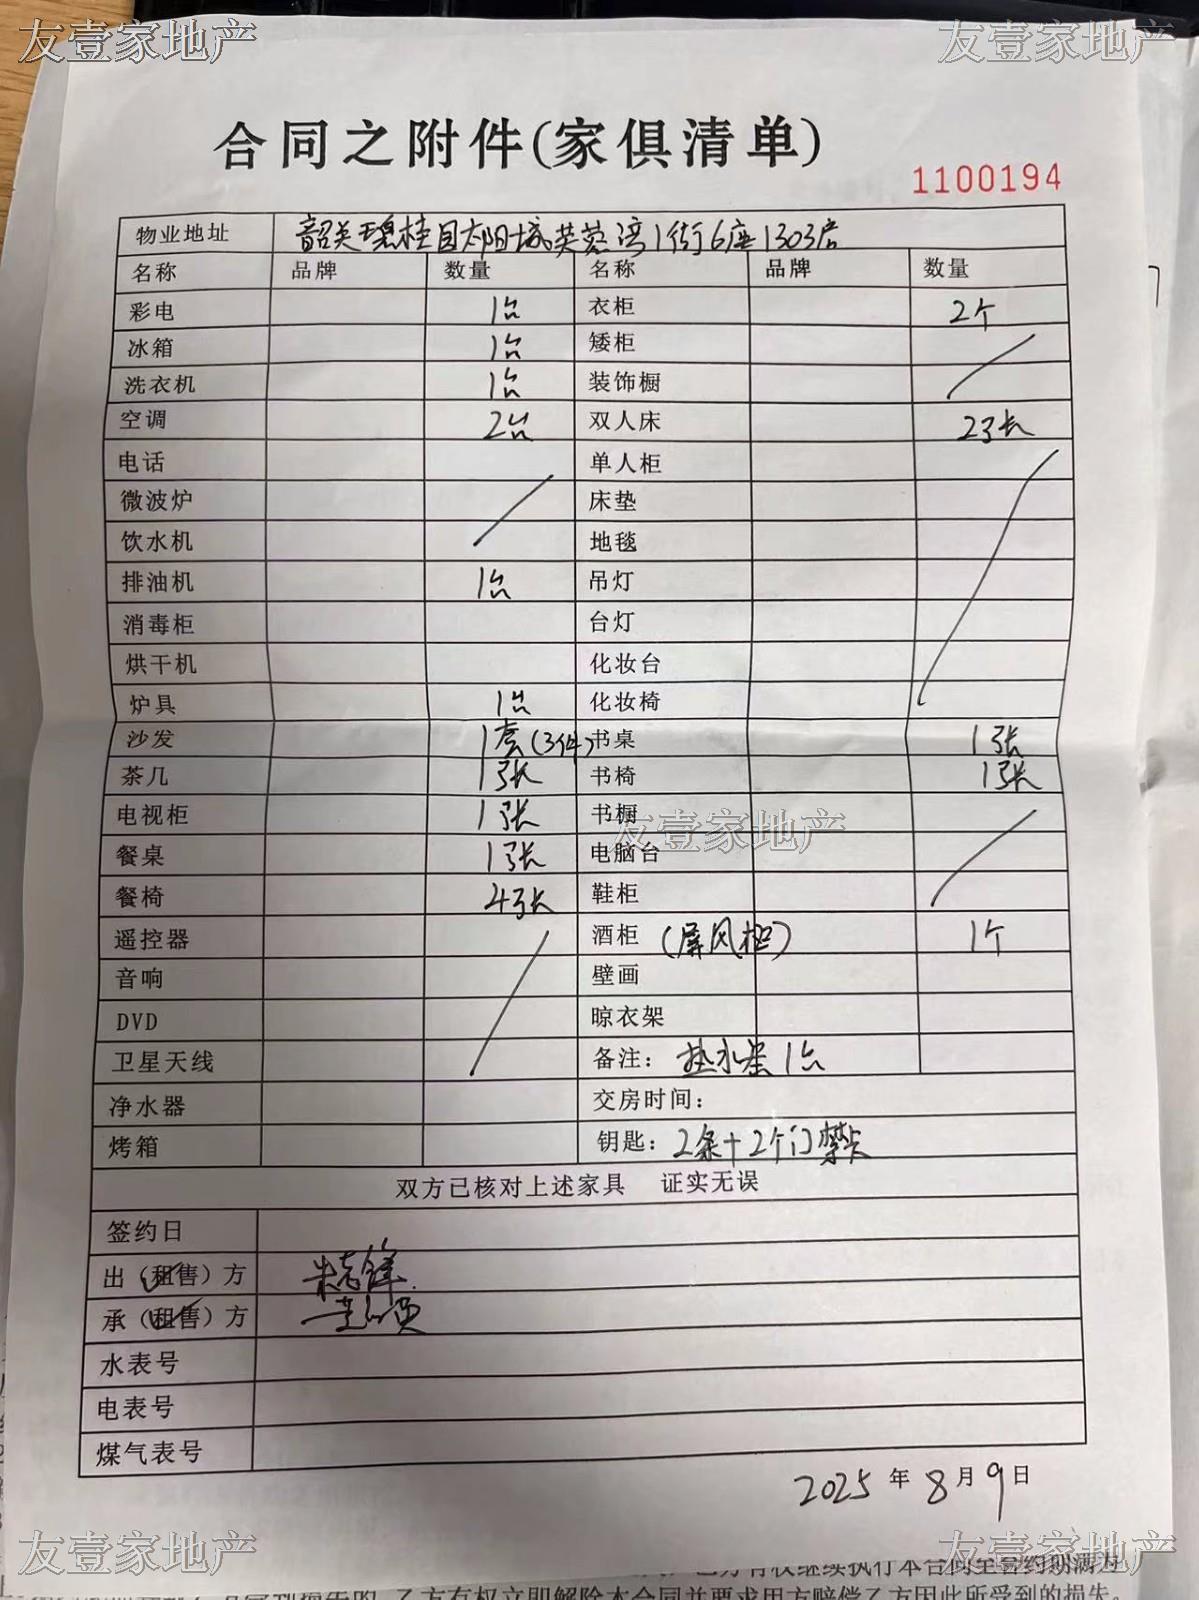 友壹家地产 友壹家地产
合同之附件(家俱清单)
1100194
物业地址 韶关碧桂园太阳城芙蓉湾1街6座1303房
名称 品牌 数量 名称 品牌 数量
彩电 1台 衣柜 2个
冰箱 1台 矮柜
洗衣机 1台 装饰橱
空调 2台 双人床 2张
电话 单人柜
微波炉 床垫
饮水机 地毯
排油机 1台 吊灯
消毒柜 台灯
烘干机 化妆台
炉具 1台 化妆椅
沙发 1套(3件) 书桌 1张
茶几 1张 书椅 1张
电视柜 1张 书橱
友壹家地产
餐桌 1张 电脑台
餐椅 4张 鞋柜
遥控器 酒柜 (屏风柜) 1个
音响 壁画
DVD 晾衣架
卫星天线 备注: 热水器1台
净水器 交房时间:
烤箱 钥匙: 2条+2个门禁卡
双方已核对上述家具 证实无误
签约日
出(租售)方 朱志锋
承(租售)方
水表号
电表号
煤气表号
2025年8月9日
友壹家地产 友壹家地产
有权继续执行本合同至合约期满为
乙方有权立即解除本合同并要求甲方赔偿乙方因此所受到的损失。